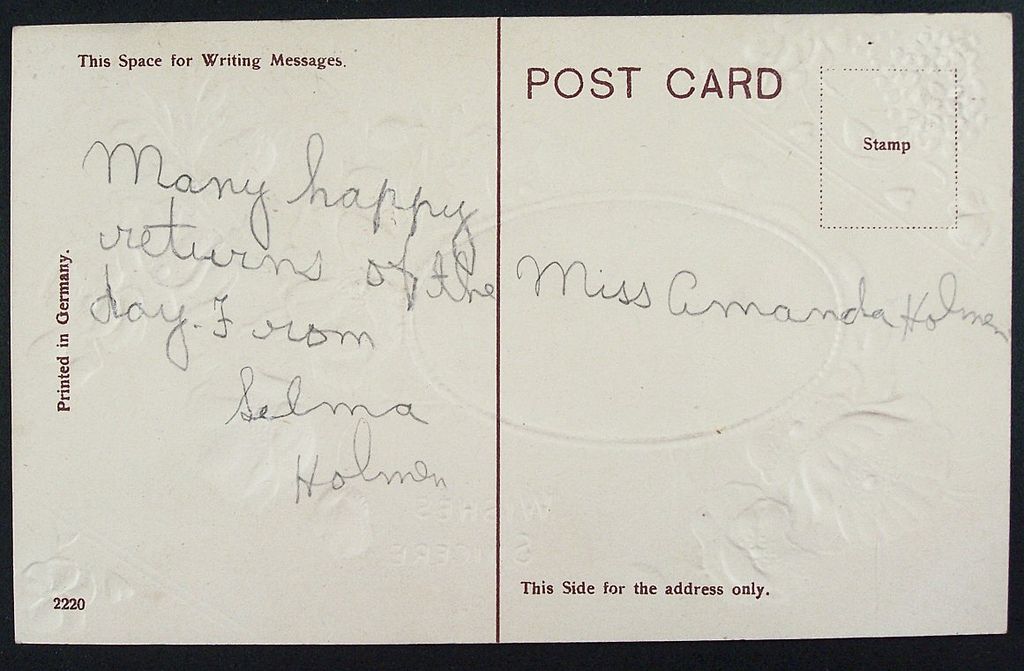 This Space for Writing Messages.
Many happy
returns of the
day. From
Selma
Holmen
Printed in Germany.
2220
POST CARD
Stamp
Miss Amanda Holmen
This Side for the address only.
WISHES
SINCERE